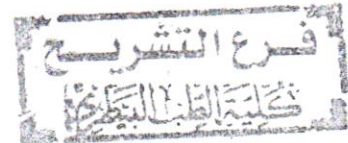 فرع التشريح
كلية الطب البيطري